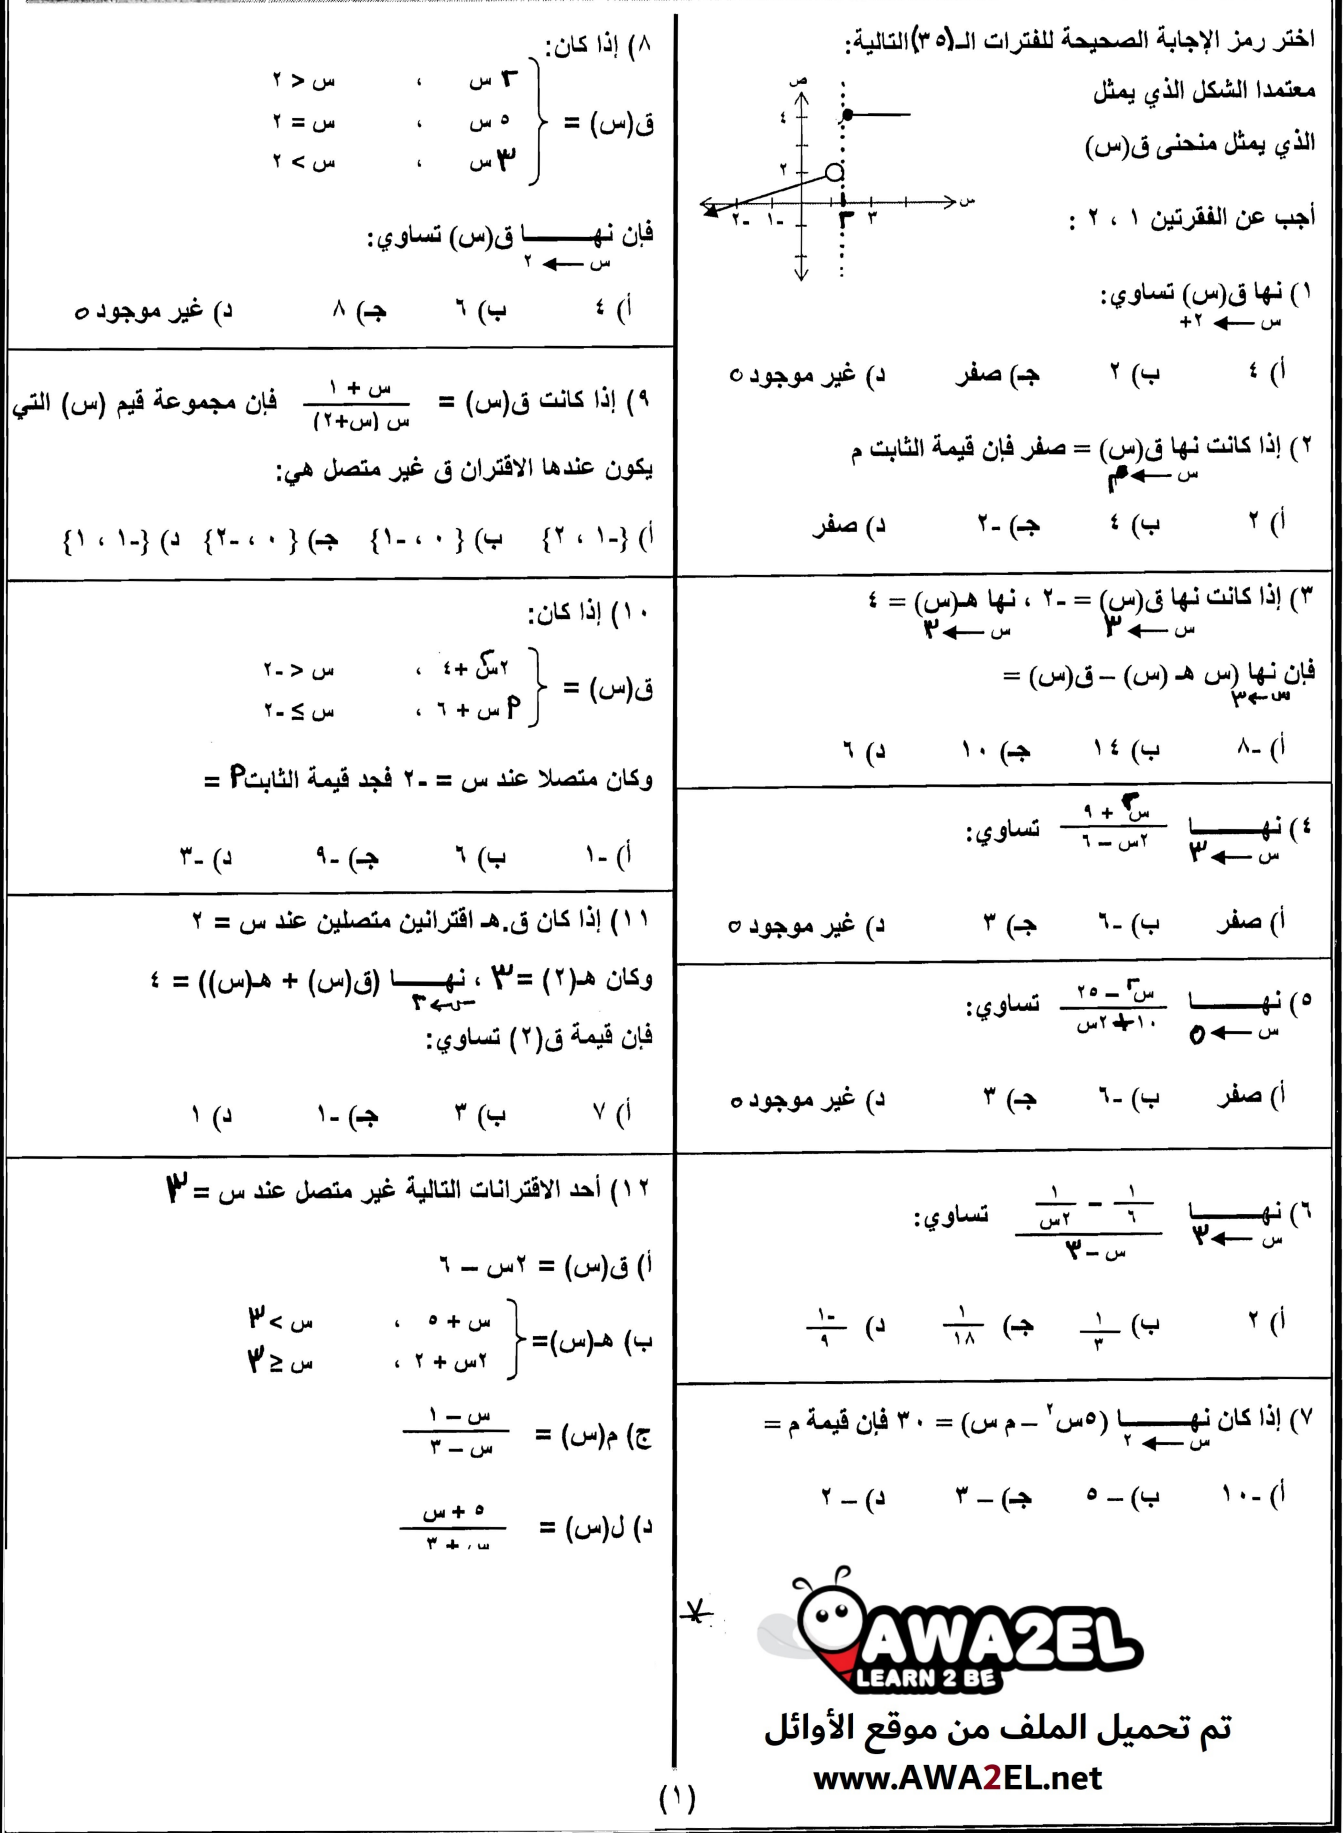 اختر رمز الإجابة الصحيحة للفترات الـ(٣٥)التالية:
معتمدا الشكل الذي يمثل
الذي يمثل منحنى ق(س)
أجب عن الفقرتين ١ ، ٢ :
ص
٤
٢
س
-٢ -١ ٢ ٣
١) نها ق(س) تساوي:
س ← ٢+
أ) ٤ ب) ٢ جـ) صفر د) غير موجود ٥
٢) إذا كانت نها ق(س) = صفر فإن قيمة الثابت م
س ← م
أ) ٢ ب) ٤ جـ) -٢ د) صفر
٣) إذا كانت نها ق(س) = -٢ ، نها هـ(س) = ٤
س ← ٣ س ← ٣
فإن نها (س هـ (س) – ق(س) =
س ← ٣
أ) -٨ ب) ١٤ جـ) ١٠ د) ٦
٤) نهـــا س٢ + ٩ / ٢س – ٦ تساوي:
س ← ٣
أ) صفر ب) -٦ جـ) ٣ د) غير موجود ٥
٥) نهـــا س٢ – ٢٥ / ١٠ + ٢س تساوي:
س ← ٥
أ) صفر ب) -٦ جـ) ٣ د) غير موجود ٥
٦) نهـــا (١/٦ – ١/٢س) / س – ٣ تساوي:
س ← ٣
أ) ٢ ب) ١/٣ جـ) ١/١٨ د) -١/٩
٧) إذا كان نهـــا (٥س٢ – م س) = ٣٠ فإن قيمة م =
س ← ٢
أ) -١٠ ب) – ٥ جـ) – ٣ د) – ٢
٨) إذا كان:
٢ س ، س < ٢
ق(س) = ٥ س ، س = ٢
٣ س ، س > ٢
فإن نهـــا ق(س) تساوي:
س ← ٢
أ) ٤ ب) ٦ جـ) ٨ د) غير موجود ٥
٩) إذا كانت ق(س) = س + ١ / س (س+٢) فإن مجموعة قيم (س) التي
يكون عندها الاقتران ق غير متصل هي:
أ) {-١ ، ٢} ب) {٠ ، -١} جـ) {٠ ، -٢} د) {-١ ، ١}
١٠) إذا كان:
٢س٢ + ٤ ، س < -٢
ق(س) =
م س + ٦ ، س ≥ -٢
وكان متصلا عند س = -٢ فجد قيمة الثابت م =
أ) -١ ب) ٦ جـ) -٩ د) -٣
١١) إذا كان ق.هـ اقترانين متصلين عند س = ٢
وكان هـ(٢) = ٣ ، نهـــا (ق(س) + هـ(س)) = ٤
س ← ٢
فإن قيمة ق(٢) تساوي:
أ) ٧ ب) ٣ جـ) -١ د) ١
١٢) أحد الاقترانات التالية غير متصل عند س = ٣
أ) ق(س) = ٢س – ٦
ب) هـ(س)= س + ٥ ، س > ٣
٢س + ٢ ، س ≤ ٣
ج) م(س) = س – ١ / س – ٣
د) ل(س) = ٥ + س / س + ٣
AWA2EL
LEARN 2 BE
تم تحميل الملف من موقع الأوائل
www.AWA2EL.net
(١)